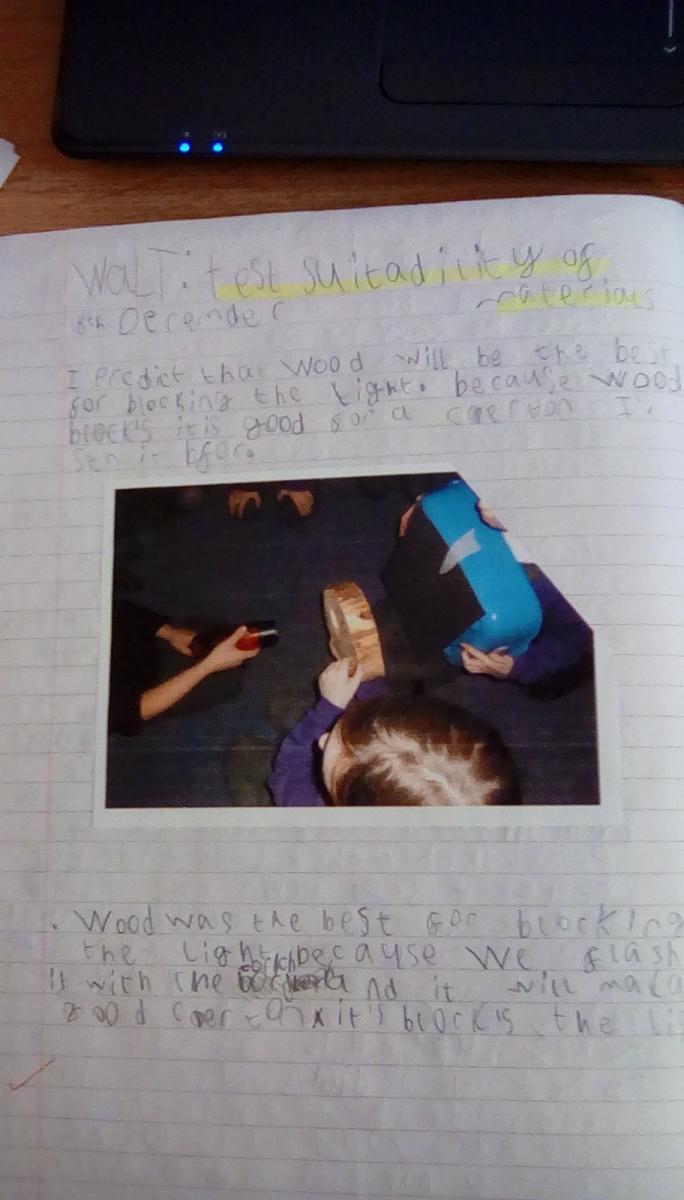 WALT: test suitadility of
materials
8th December
I Predict that wood will be the best
for blocking the Light. because wood
block's it is good for a caerton I.
Sen it bfor.
. Wood was the best for blocking
the light because we flash
it with the torch And it will maka
good caer tan it's block's the li